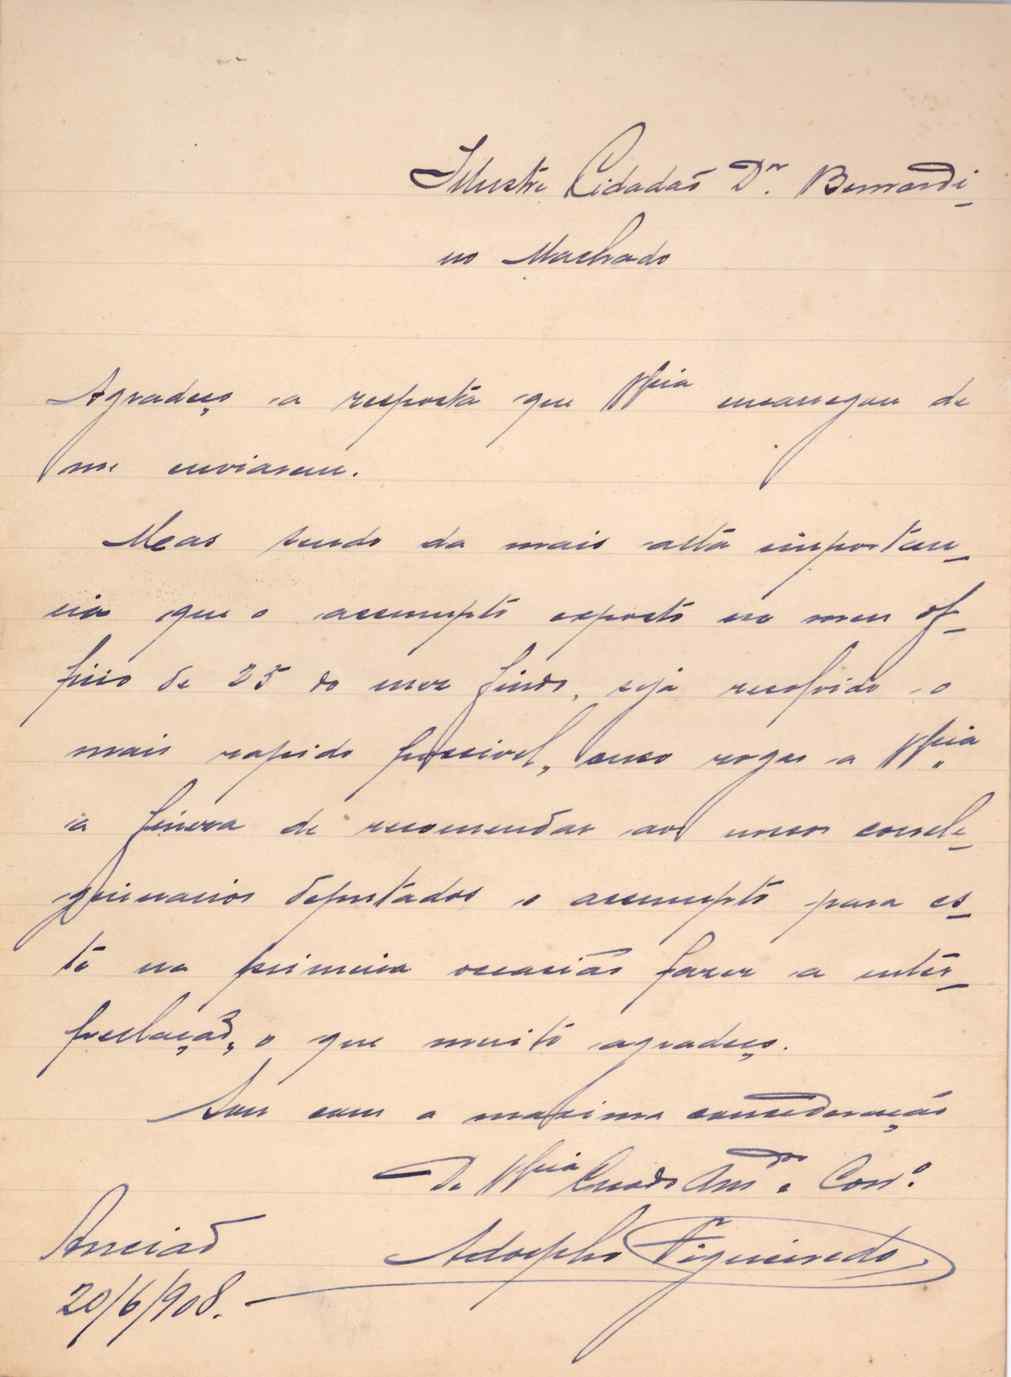 Illustre Cidadão Dr. Bernardi-
no Machado
Agradeço a resposta que V.Excia encarregou de
me enviarem.
Mas sendo da mais alta importan-
cia que o assumpto exposto no meu of-
ficio de 25 do mez findo, seja resolvido o
mais rapido possivel, ouso rogar a V.Excia
a fineza de recomendar aos nossos correli-
gionarios deputados o assumpto para es-
te na primeira occasião fazer a inter-
pellação, o que muito agradeço.
Sou com a maxima consideração
De V.Excia Criado Amo e Corro.
Adolpho Figueiredo
Ancião
20/6/908.